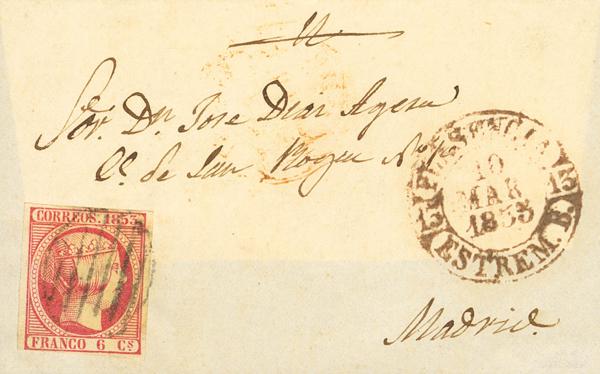 Sor. Dn. Jose Diaz Agero
Ce. de San Roque No.
PLASENCIA
10
MAR
1853
15 15
ESTREM. B.
CORREOS. 1853
FRANCO 6 Cs
Madrid.